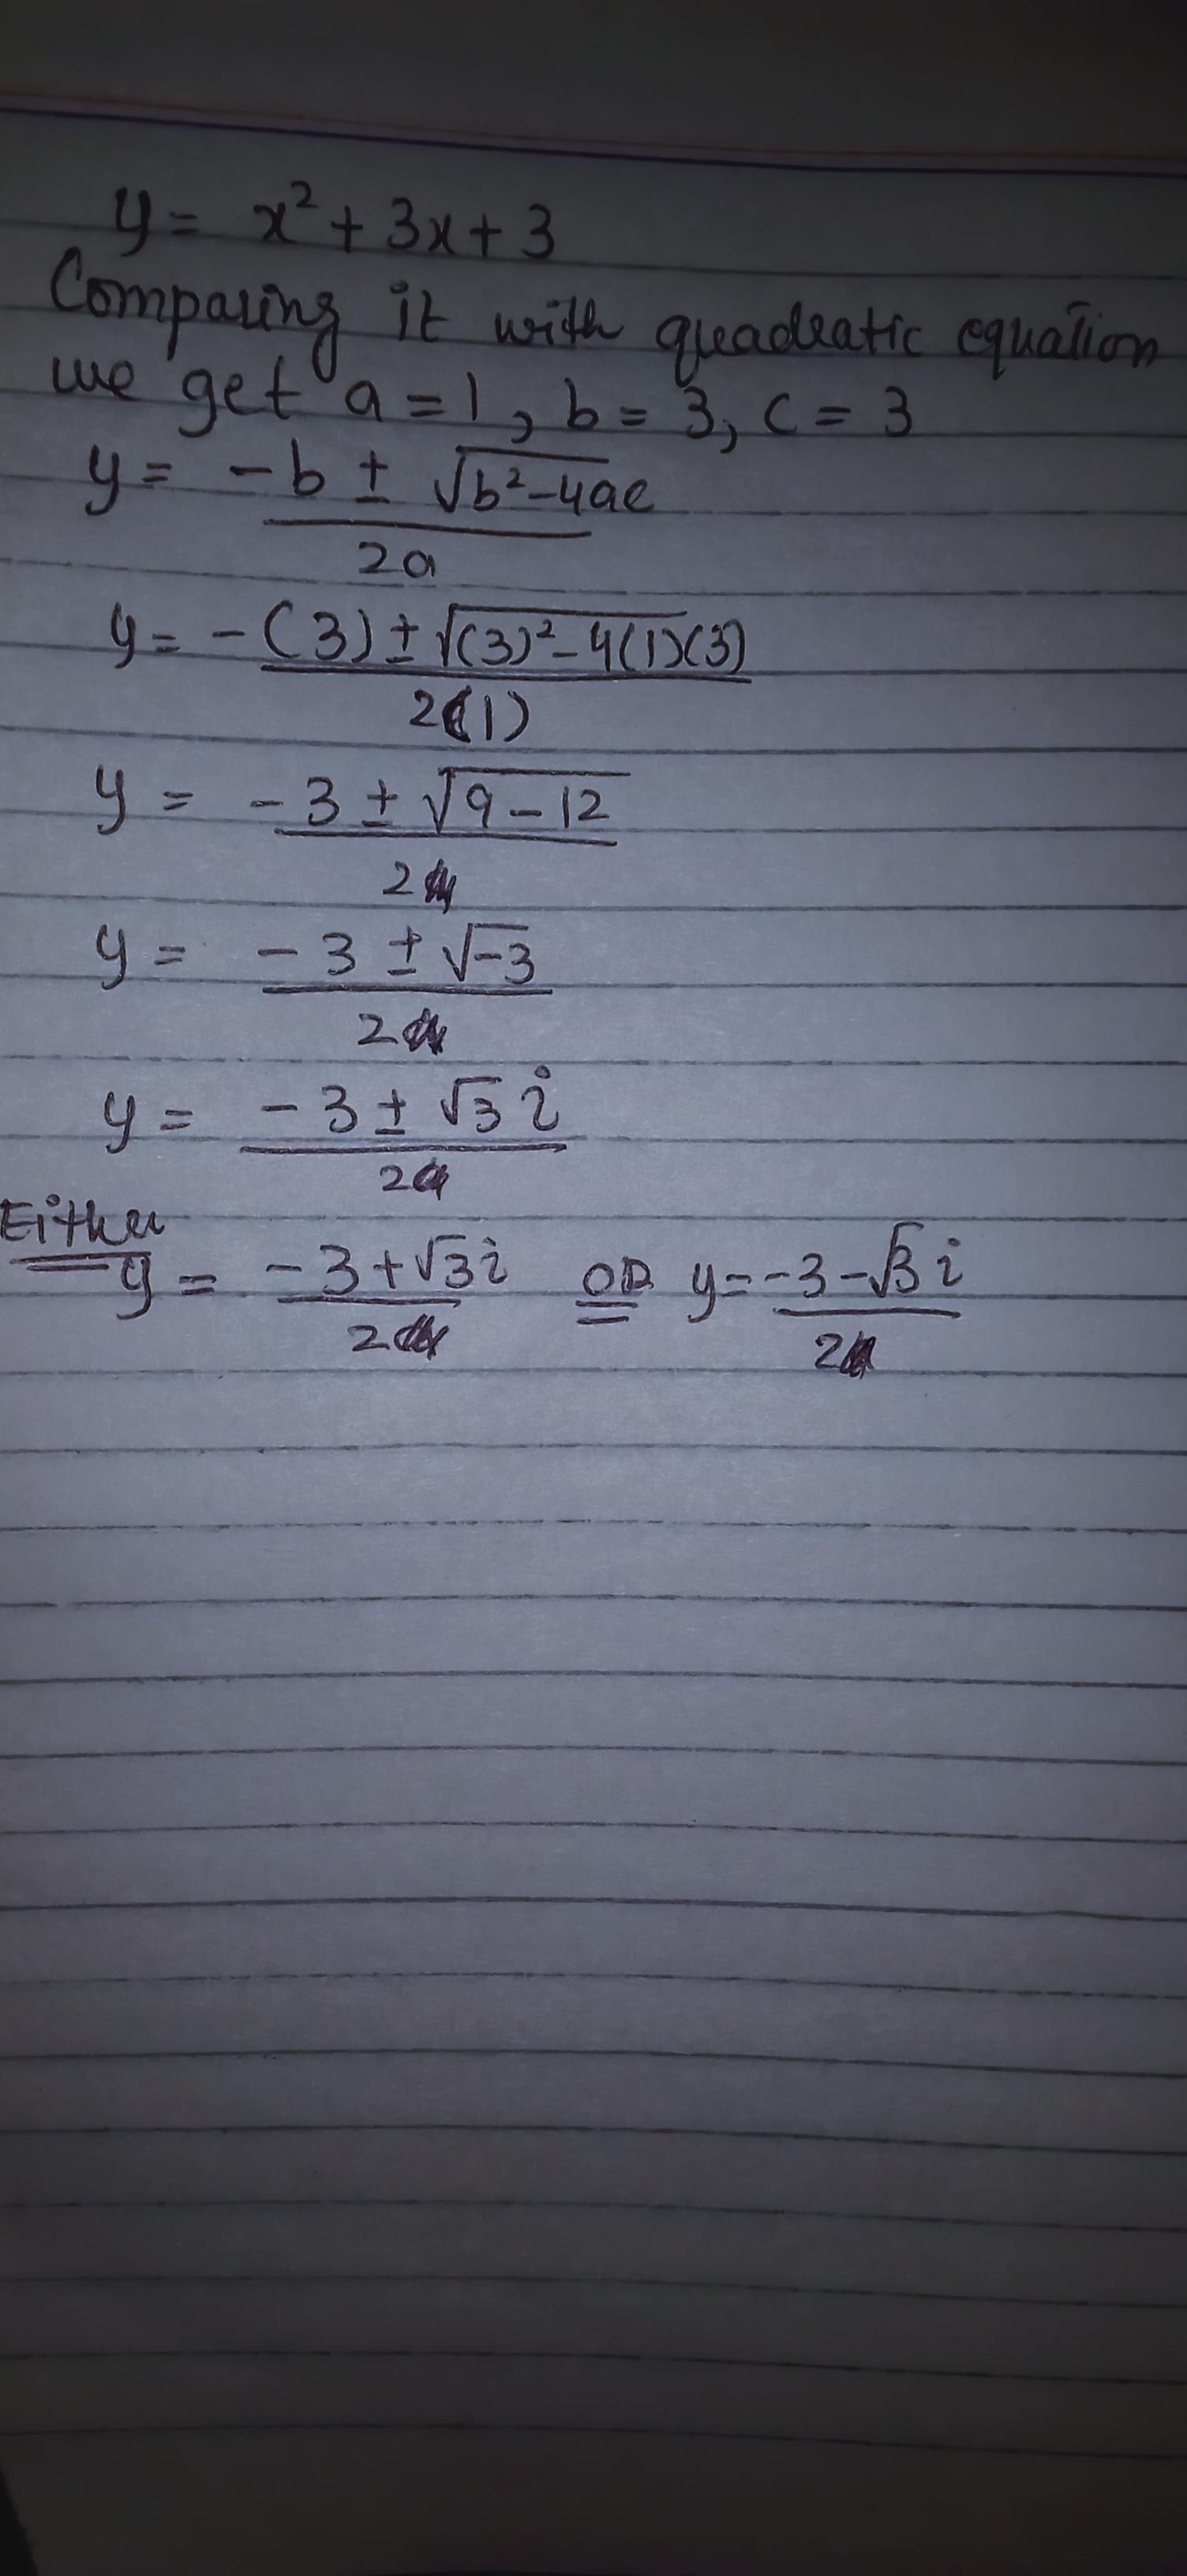 y = x² + 3x + 3
Comparing it with quadratic equation
we get a = 1, b = 3, c = 3
y = -b ± √b²-4ac
2a
y = -(3) ± √(3)²-4(1)(3)
2(1)
y = -3 ± √9-12
2
y = -3 ± √-3
2
y = -3 ± √3 i
2
Either
y = -3+√3 i OR y = -3-√3 i
2 2